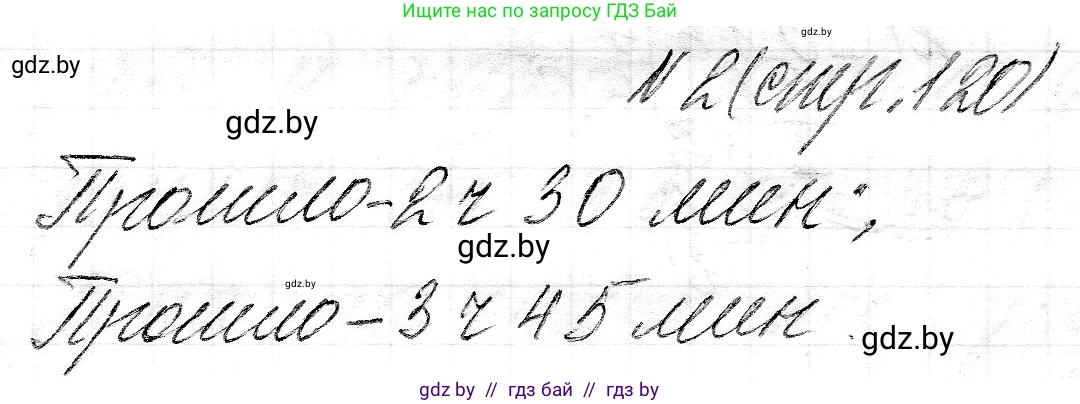 Ищите нас по запросу ГДЗ Бай
gdz.by
gdz.by
N 2 (стр. 120)
gdz.by
Прошло - 2 ч 30 мин;
gdz.by
gdz.by
Прошло - 3 ч 45 мин
gdz.by
gdz by // гдз бай // гдз by